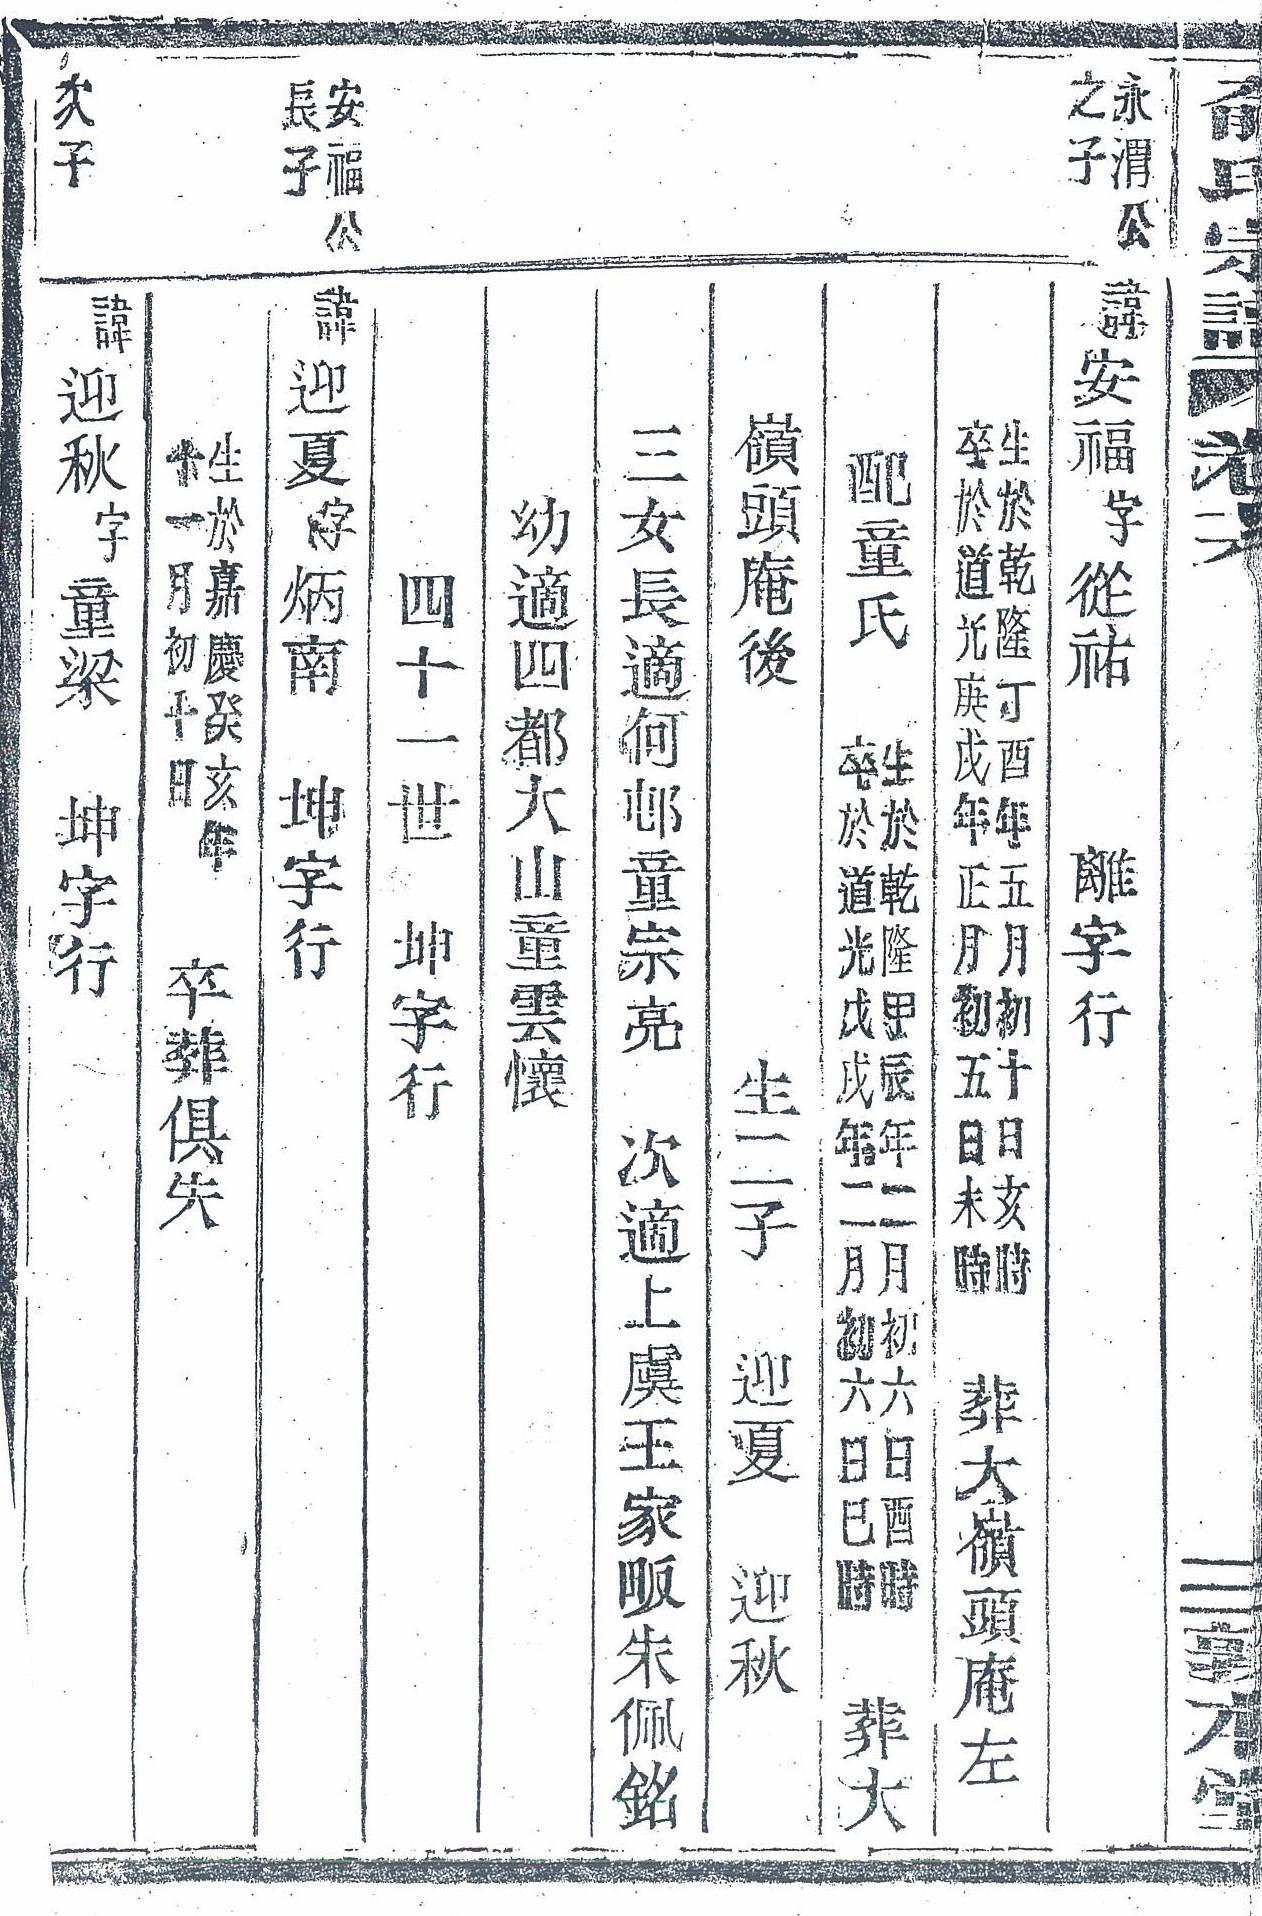 俞氏宗譜 卷六 三 義方堂
永渭公
之子
諱安福字從祐 離字行
生於乾隆丁酉年五月初十日亥時
卒於道光庚戌年正月初五日未時
葬大嶺頭庵左
配童氏
生於乾隆甲辰年二月初六日酉時
卒於道光戊戌年二月初六日巳時
葬大
嶺頭庵後 生二子 迎夏 迎秋
三女長適何邨童宗亮 次適上虞王家畈朱佩銘
幼適四都大山童雲懷
四十一世 坤字行
安福公
長子
諱迎夏字炳南 坤字行
生於嘉慶癸亥年
十一月初十日
卒葬俱失
次子
諱迎秋字童梁 坤字行